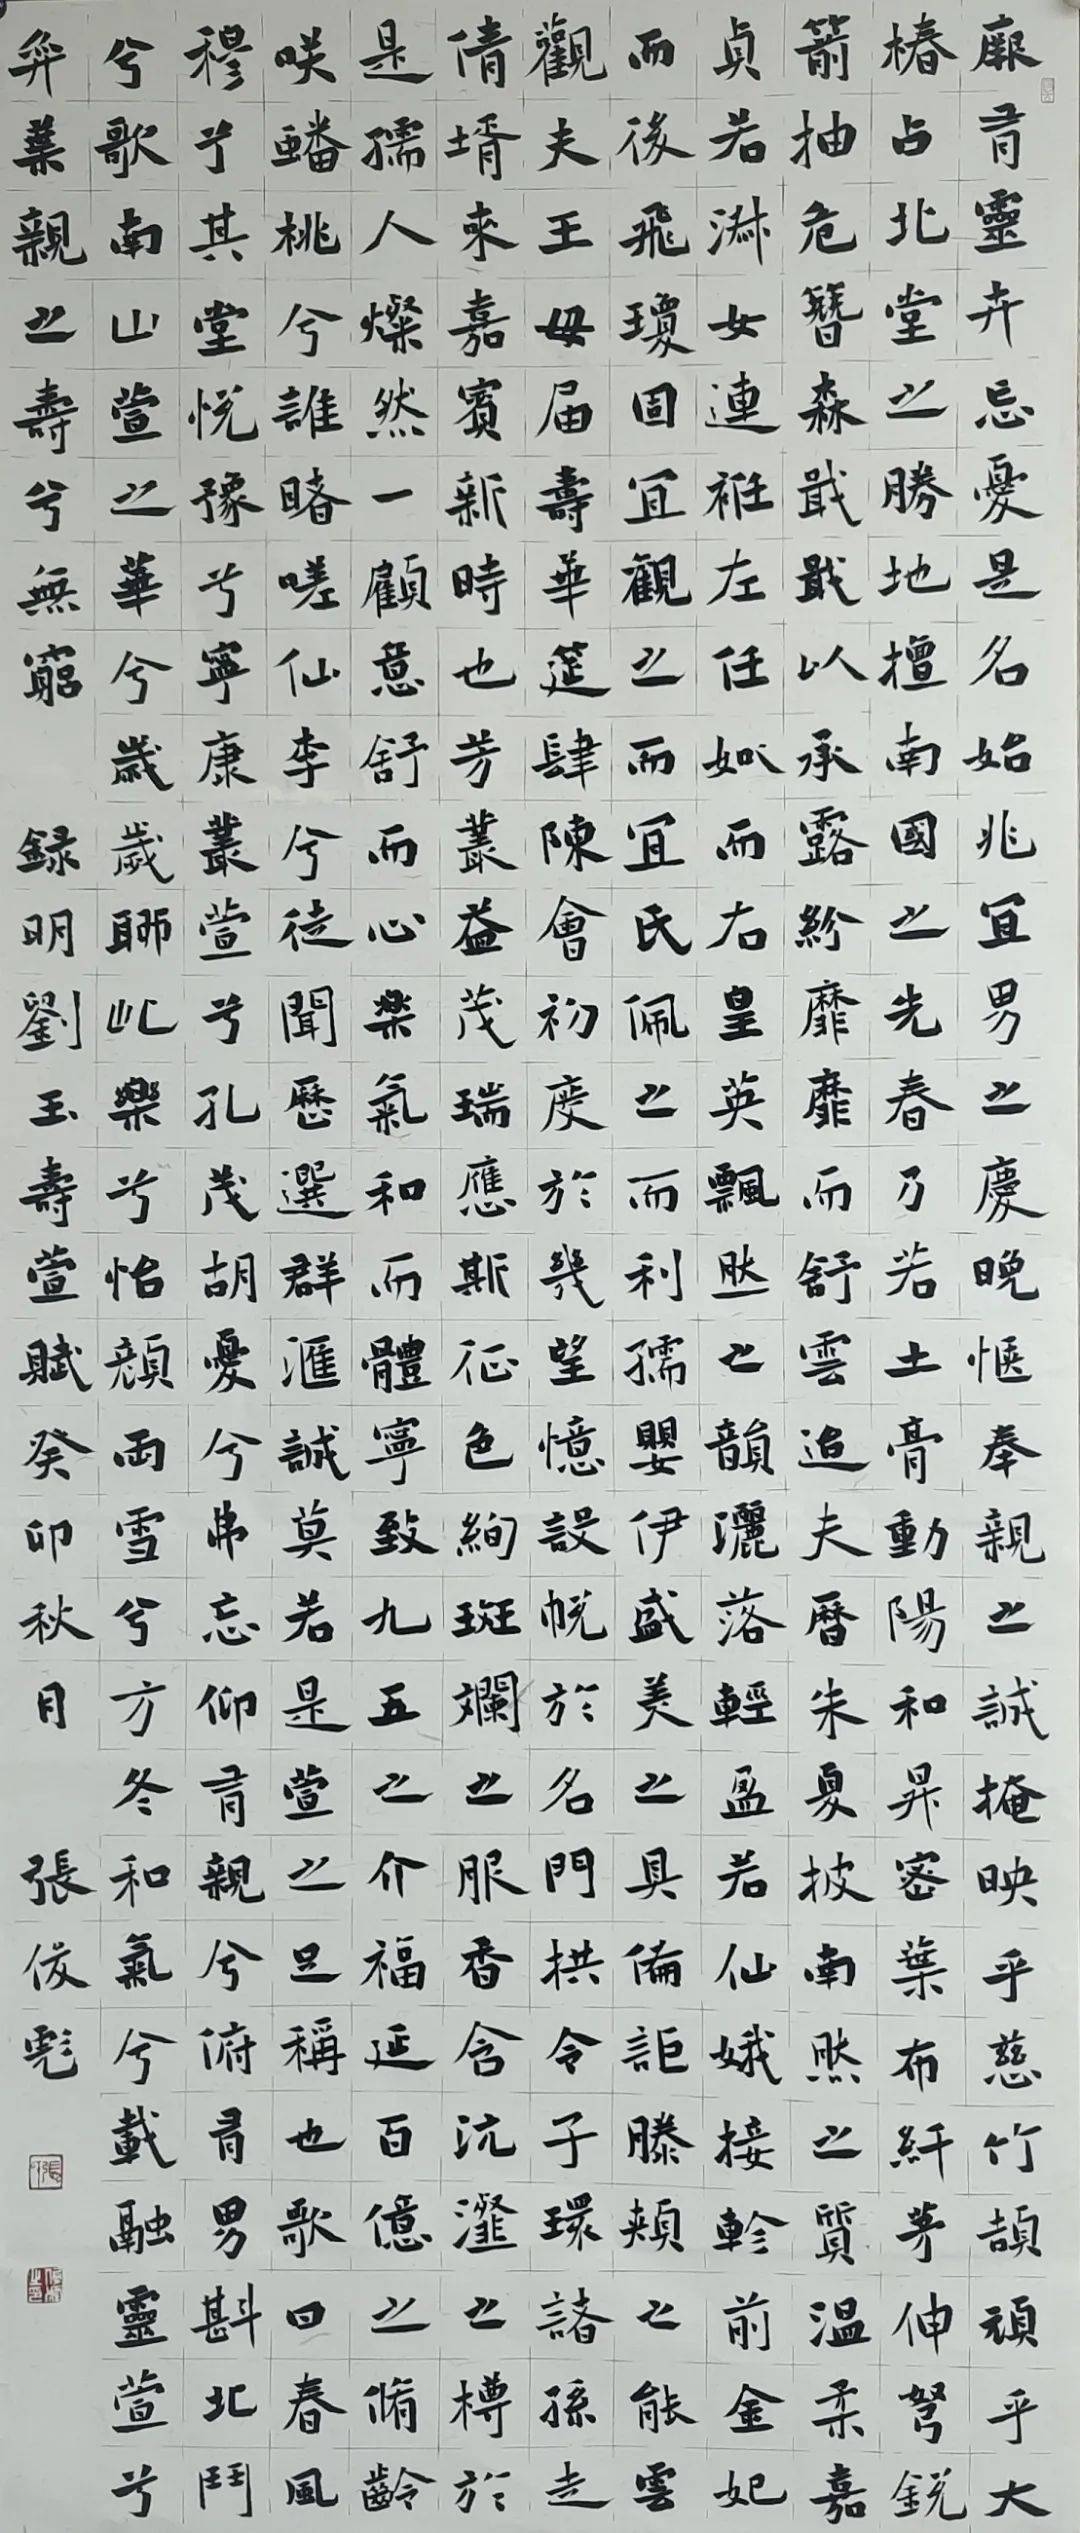 厥有靈卉忘憂是名始兆宜男之慶晚愜奉親之誠掩映乎慈竹頡頑乎大
椿占北堂之勝地擅南國之先春乃若土膏動陽和昇密葉布纤芽伸弩銳
箭抽危簪森戢戢以承露紛靡靡而舒雲迨夫曆朱夏披南熏之質溫柔嘉
貞若漭女連袵左任姒而右皇英飄然之韻灑落輕盈若仙娥接軫前金妃
而後飛瓊固宜觀之而宜氏佩之而利孺嬰伊盛美之具備詎滕頰之能雲
觀夫王母届壽華筵肆陳會初度於幾望憶設帨於名門拱令子環諸孫走
倩壻來嘉賓新時也芳叢益茂瑞應斯征色絢斑斓之服香含沆瀣之樽於
是孺人燦然一顧意舒而心樂氣和而體寧致九五之介福延百億之脩齡
咲蟠桃兮誰睹嗟仙李兮徒聞歷選群滙誠莫若是萱之足稱也歌曰春風
穆兮其堂悦豫兮寧康叢萱兮孔茂胡憂兮弗忘仰有親兮俯有男斟北鬥
兮歌南山萱之華兮歲歲聊此樂兮怡顏雨雪兮方冬和氣兮載融靈萱兮
弈葉親之壽兮無窮 録明劉玉壽萱賦癸卯秋月 張俊彪